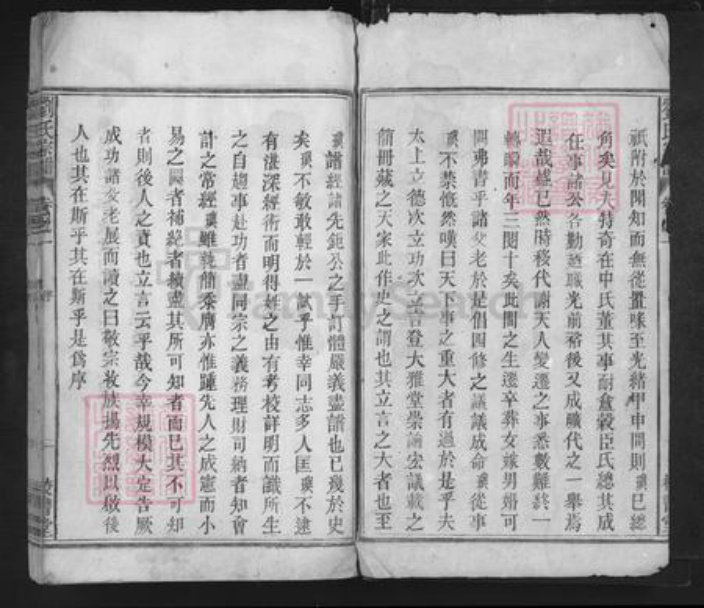 祇附於聞知而無從置喙至光緒甲申間則璞已總
角矣見夫特奇在中氏董其事耐愈穀臣氏總其成
任事諸公各勤厥職光前裕後又成殲代之一舉焉
遐哉邈已然時移代謝天人變遷之事悉數難終一
轉瞬而年三閱十矣此間之生遷卒葬女嫁男婚可
聞弗書乎諸父老於是倡四修之議議成命璞從事
璞不禁慨然嘆曰天下事之重大者有過於是乎夫
太上立德次立功次立言登大雅堂崇論宏議載之
簡冊藏之天家此作史之謂也其立言之大者也至
譜經諸先鉅公之手訂體嚴義盡譜也已幾於史
矣璞不敏敢輕於一試乎惟幸同志多人匡璞不逮
有湛深經術而明得姓之由有考校詳明而識所生
之自趨事赴功者盡同宗之義務理財司納者知會
計之常經璞雖執簡秉膺亦惟踵先人之成憲而小
易之闕者補終者續盡其所可知者而已其不可知
者則後人之責也立言云乎哉今幸規模大定告厥
成功諸父老展而讀之曰敬宗收族揚先烈以啟後
人也其在斯乎其在斯乎是為序
劉氏宗譜
FamilySearch